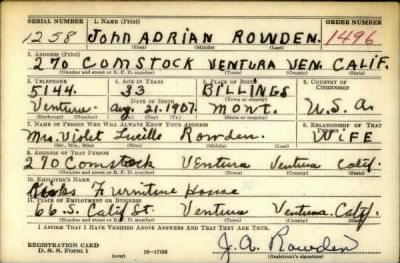 SERIAL NUMBER 1. NAME (Print) ORDER NUMBER
1258 JOHN ADRIAN ROWDEN. 1496
(First) (Middle) (Last)
2. ADDRESS (Print)
270 COMSTOCK VENTURA VEN. CALIF.
(Number and street or R. F. D. number) (Town) (County) (State)
3. TELEPHONE 4. AGE IN YEARS 5. PLACE OF BIRTH 6. COUNTRY OF CITIZENSHIP
5144. 33 BILLINGS
DATE OF BIRTH (Town or county)
Ventura Aug. 21. 1907. MONT. U.S.A.
(Exchange) (Number) (Mo.) (Day) (Yr.) (State or country)
7. NAME OF PERSON WHO WILL ALWAYS KNOW YOUR ADDRESS 8. RELATIONSHIP OF THAT PERSON
Mrs. Violet Lucille Rowden. WIFE
(Mr., Mrs., Miss) (First) (Middle) (Last)
9. ADDRESS OF THAT PERSON
270 Comstock Ventura Ventura Calif.
(Number and street or R. F. D. number) (Town) (County) (State)
10. EMPLOYER'S NAME
Furniture House
11. PLACE OF EMPLOYMENT OR BUSINESS
66 S. Calif St. Ventura Ventura. Calif.
(Number and street or R. F. D. number) (Town) (County) (State)
I AFFIRM THAT I HAVE VERIFIED ABOVE ANSWERS AND THAT THEY ARE TRUE.
REGISTRATION CARD
D. S. S. Form 1 16—17105 J. A. Rowden
(over) (Registrant's signature)